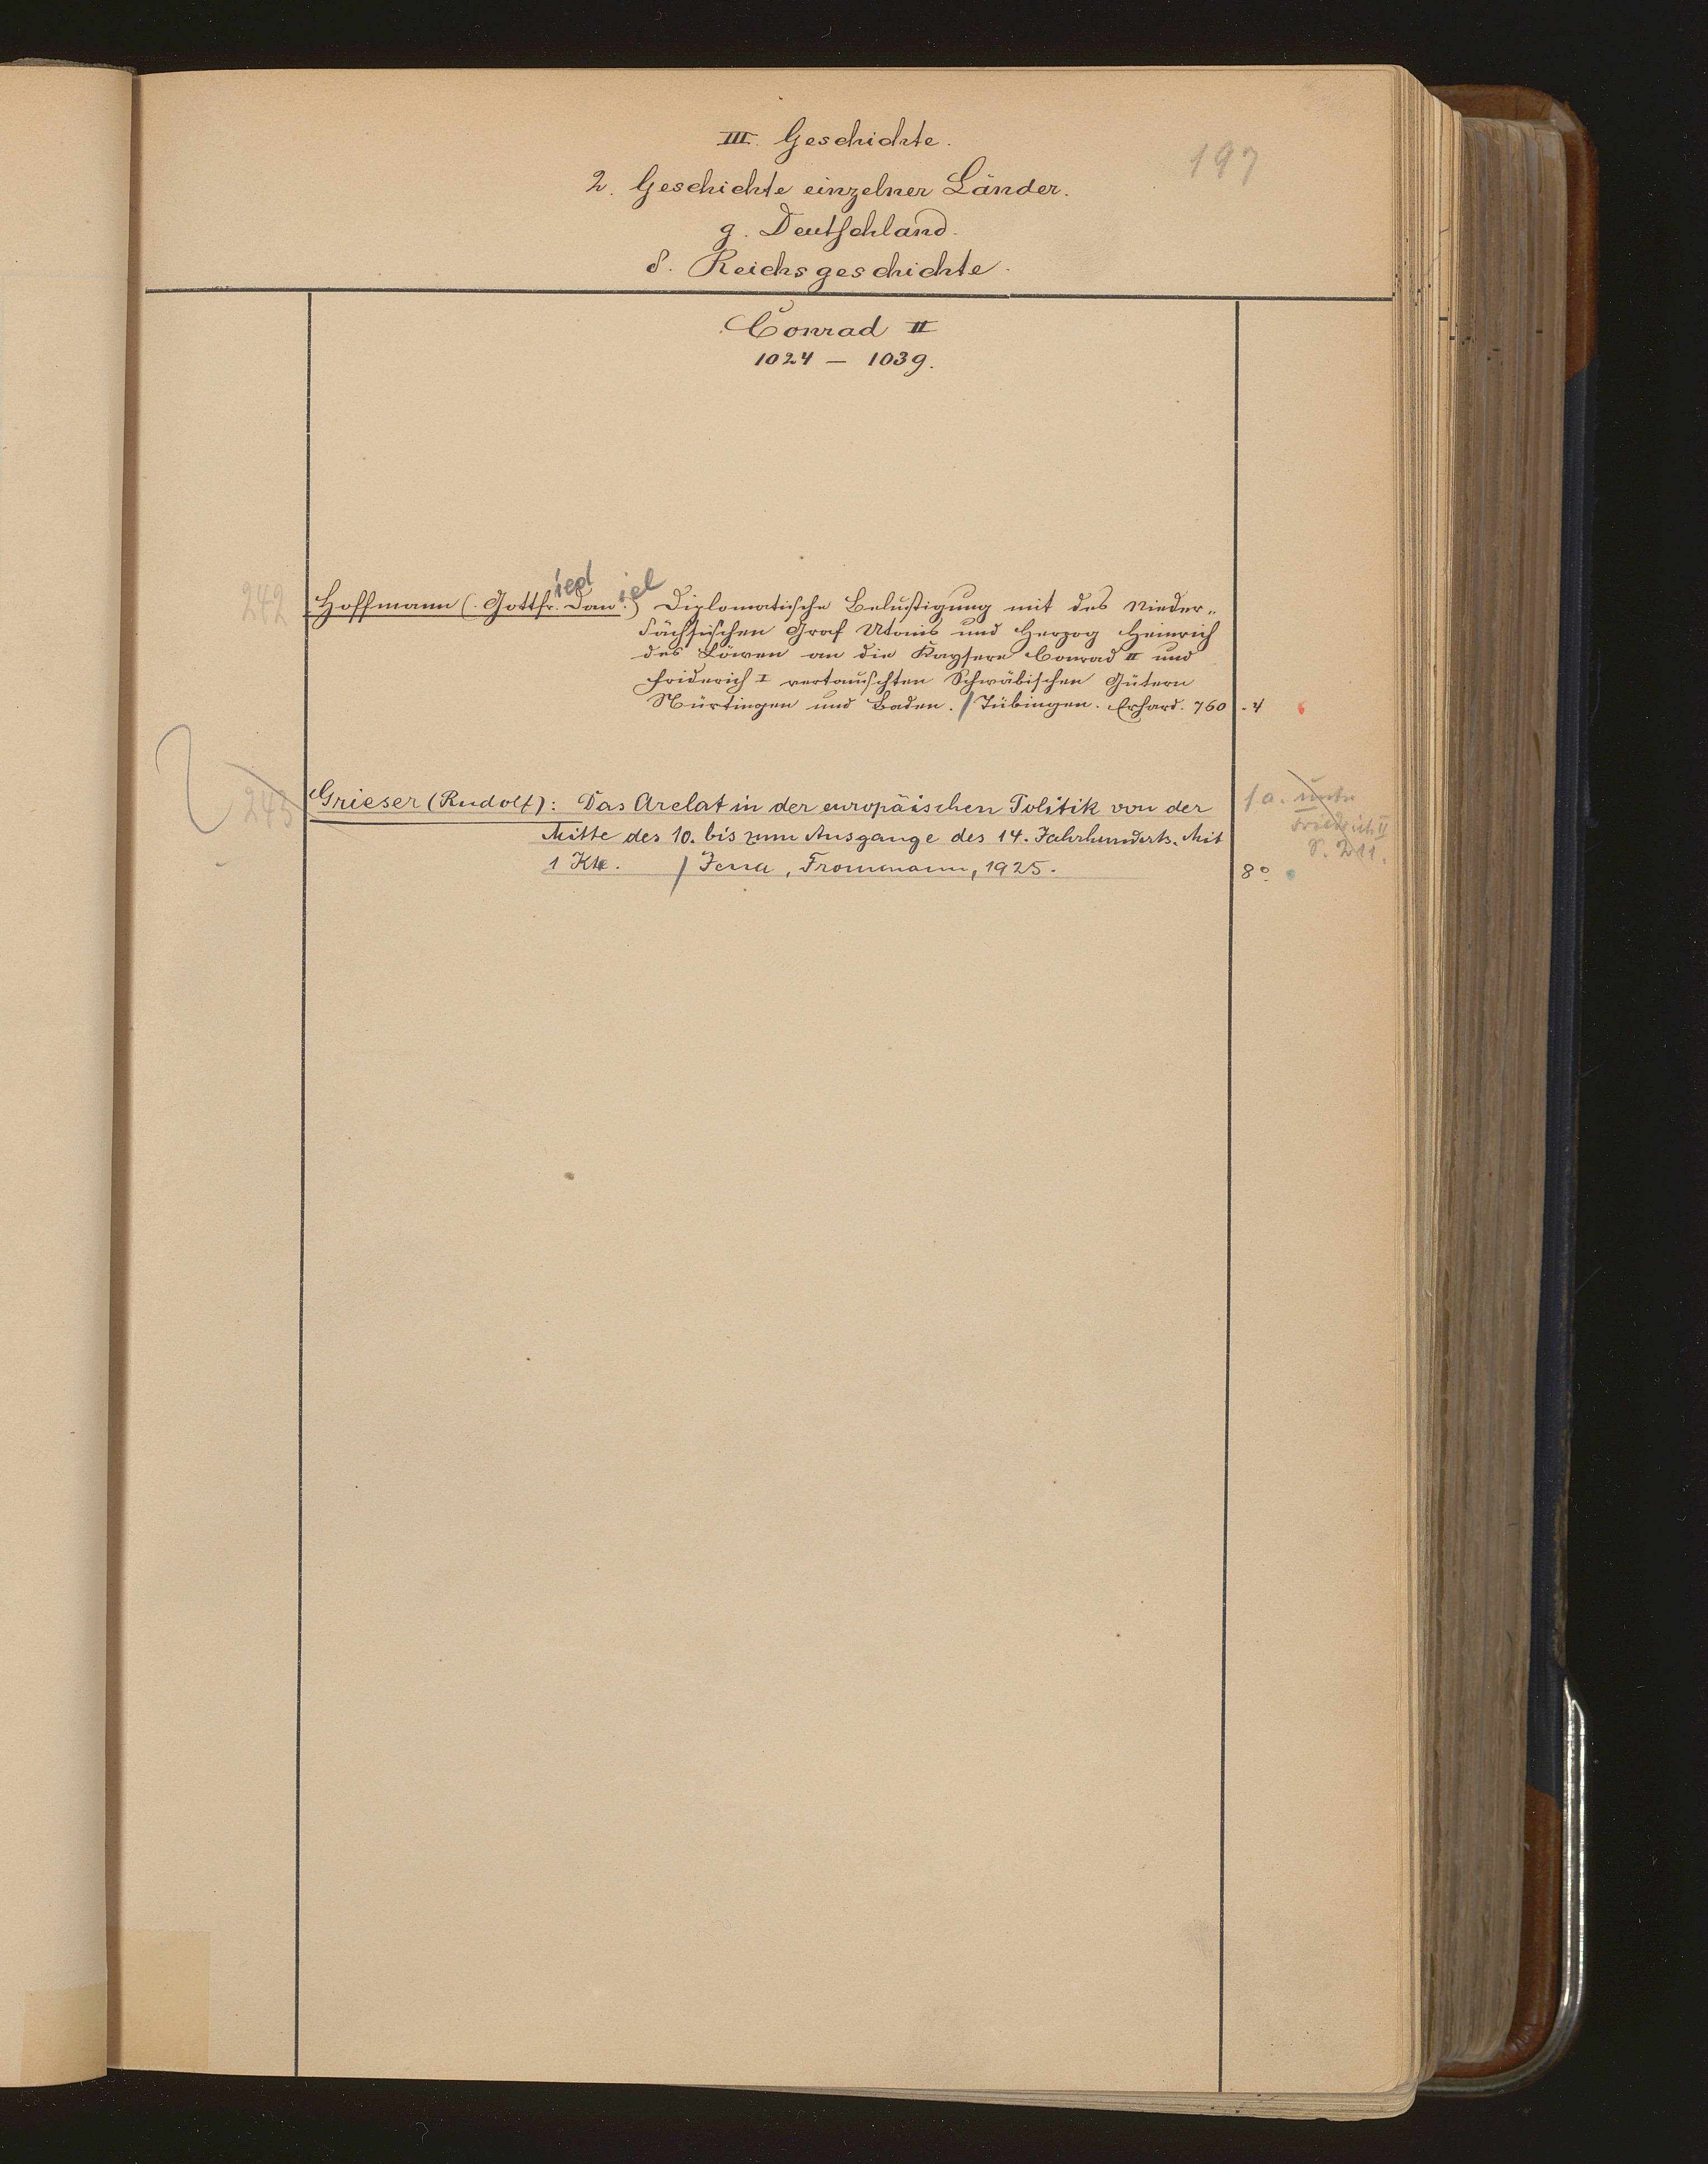 197
III. Geschichte.
2. Geschichte einzelner Länder.
g. Deutschland.
δ. Reichsgeschichte.
Conrad II
1024 — 1039.
242
Hoffmann (Gottfr.ied Dan.iel) Diplomatische Belustigung mit des Nieder-
sächsischen Graf Utonis und Herzog Heinrich
des Löwen an die Kaysere Conrad II und
Friderich I vertauschten Schwäbischen Gütern
Nürtingen und Baden. / Tübingen. Erhard. 760 . 4
243
Grieser (Rudolf): Das Arelat in der europäischen Politik von der
Mitte des 10. bis zum Ausgange des 14. Jahrhunderts. Mit
1 Kte. / Jena, Frommann, 1925. 8°.
s. a. unter
Friedrich II
S. 211.